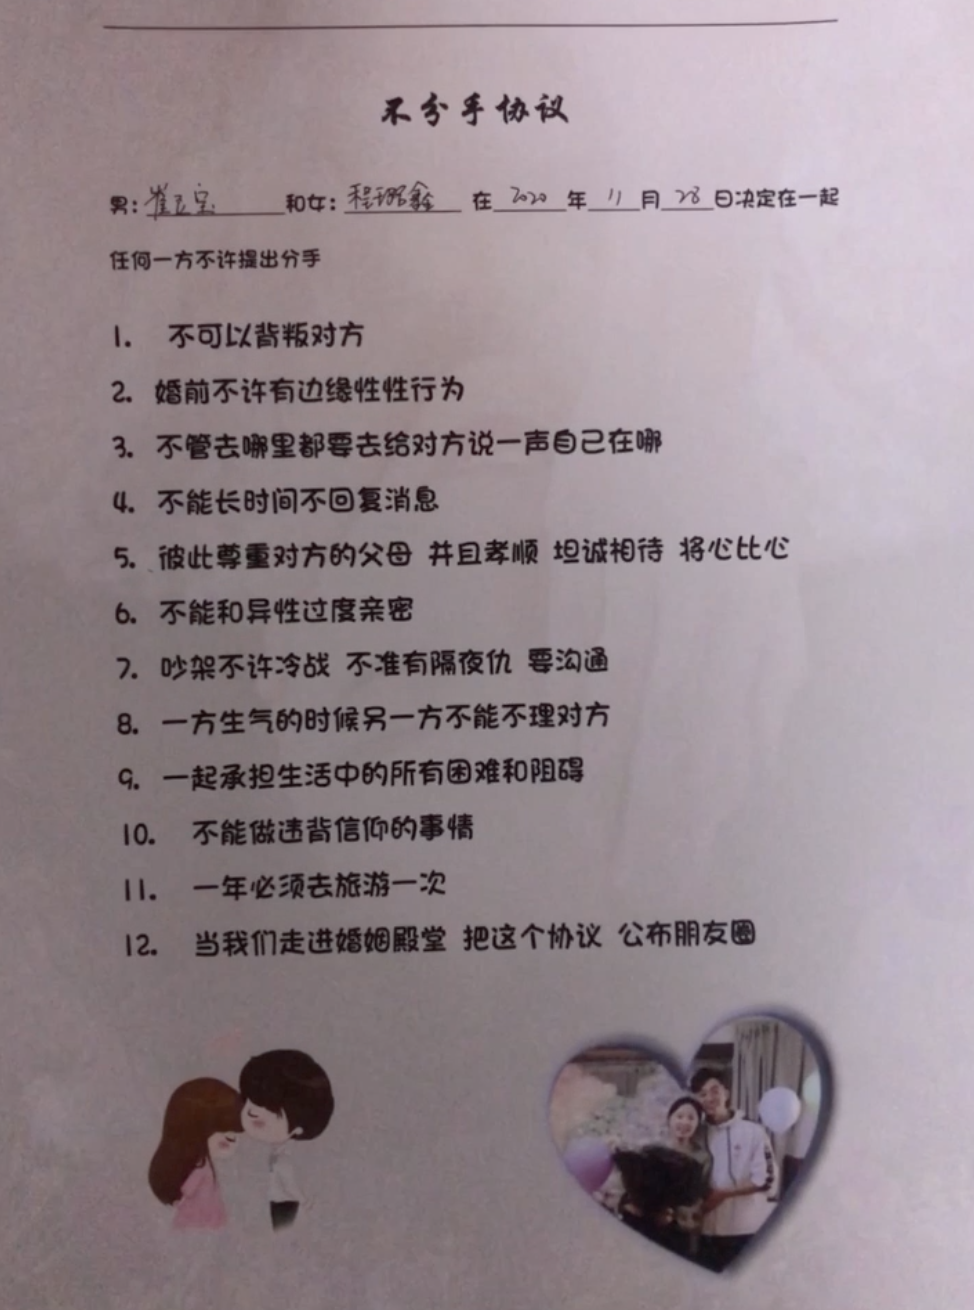 不分手协议
男:崔立宝 和女:程璐鑫 在 2020 年 11 月 28 日决定在一起
任何一方不许提出分手
1. 不可以背叛对方
2. 婚前不许有边缘性性行为
3. 不管去哪里都要去给对方说一声自己在哪
4. 不能长时间不回复消息
5. 彼此尊重对方的父母 并且孝顺 坦诚相待 将心比心
6. 不能和异性过度亲密
7. 吵架不许冷战 不准有隔夜仇 要沟通
8. 一方生气的时候另一方不能不理对方
9. 一起承担生活中的所有困难和阻碍
10. 不能做违背信仰的事情
11. 一年必须去旅游一次
12. 当我们走进婚姻殿堂 把这个协议 公布朋友圈